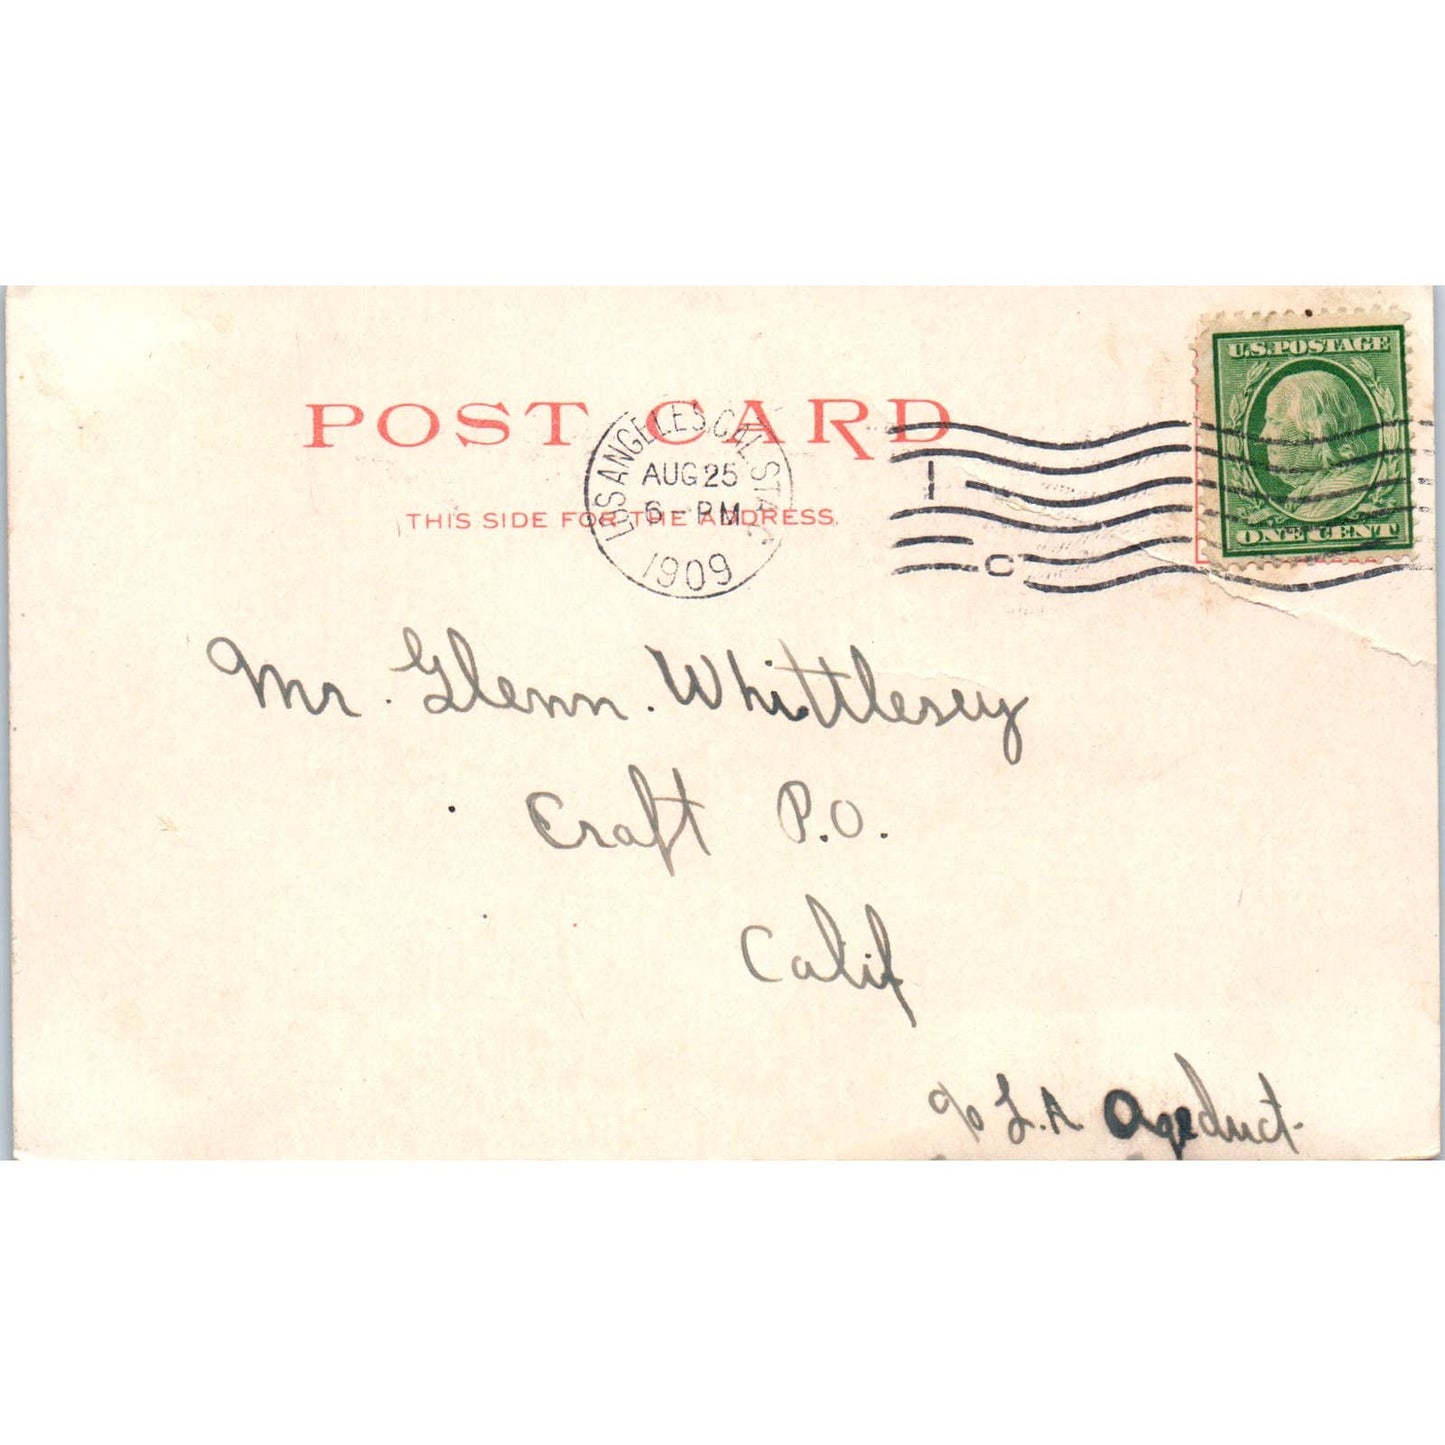 U.S. POSTAGE
POST CARD
LOS ANGELES, CAL. STA. C
AUG 25
6 - PM
1909
1
C
THIS SIDE FOR THE ADDRESS.
ONE CENT
Mr. Glenn. Whittlesey
Craft P.O.
Calif
c/o L.A Aqeduct.